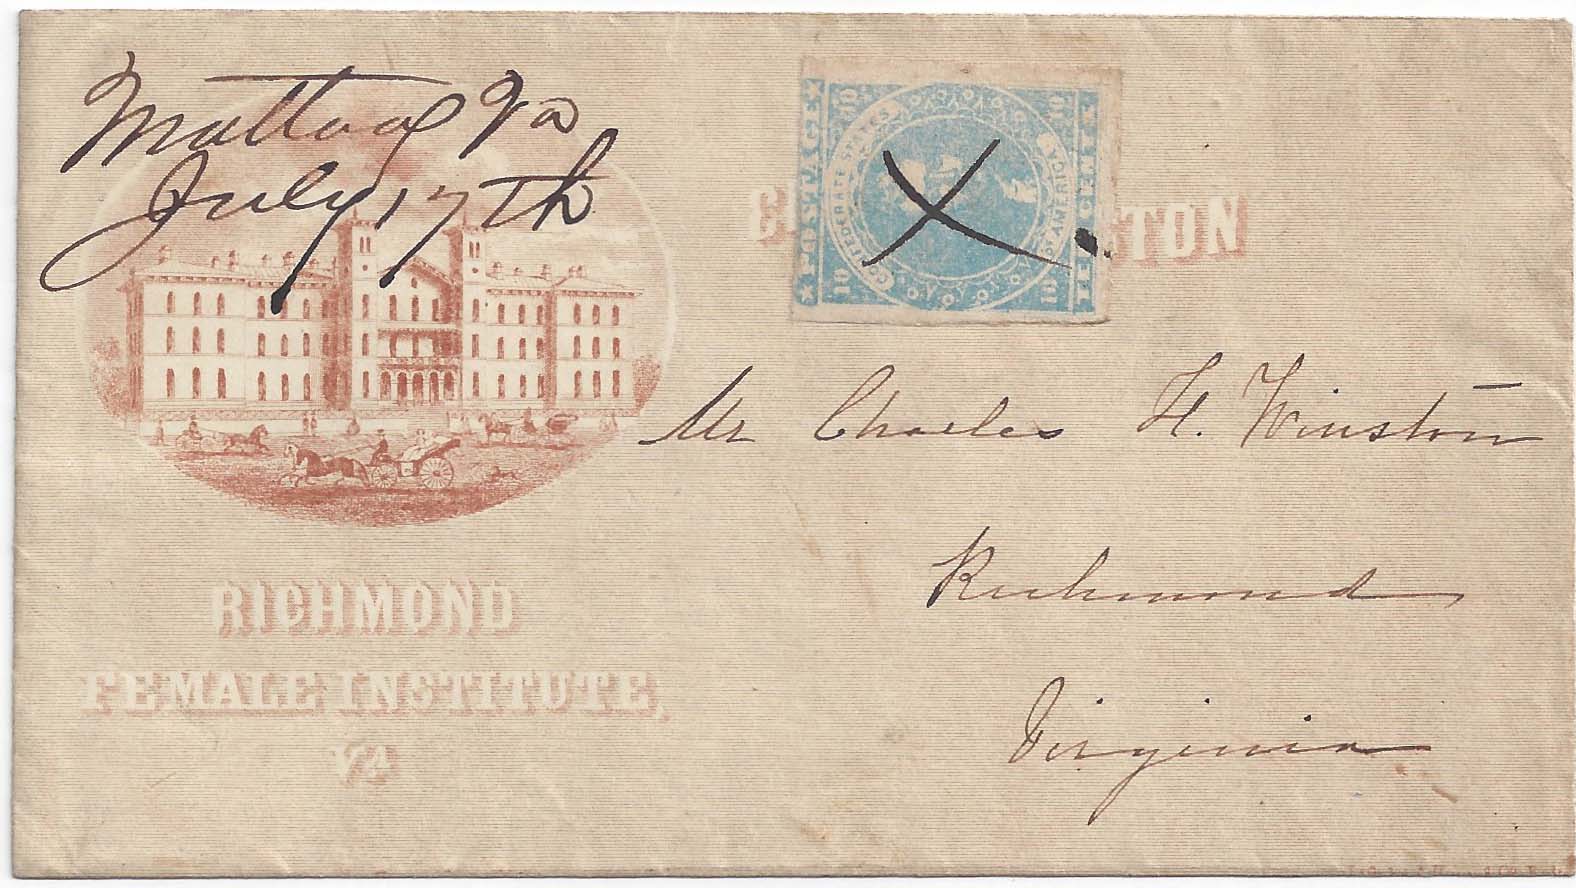 Mattoax Va
July 17th
POSTAGE
CONFEDERATE STATES
OF AMERICA
TEN CENTS
10 10
10 10
C TON
Mr Charles H. Winston
Richmond
Virginia
RICHMOND
FEMALE INSTITUTE,
VA